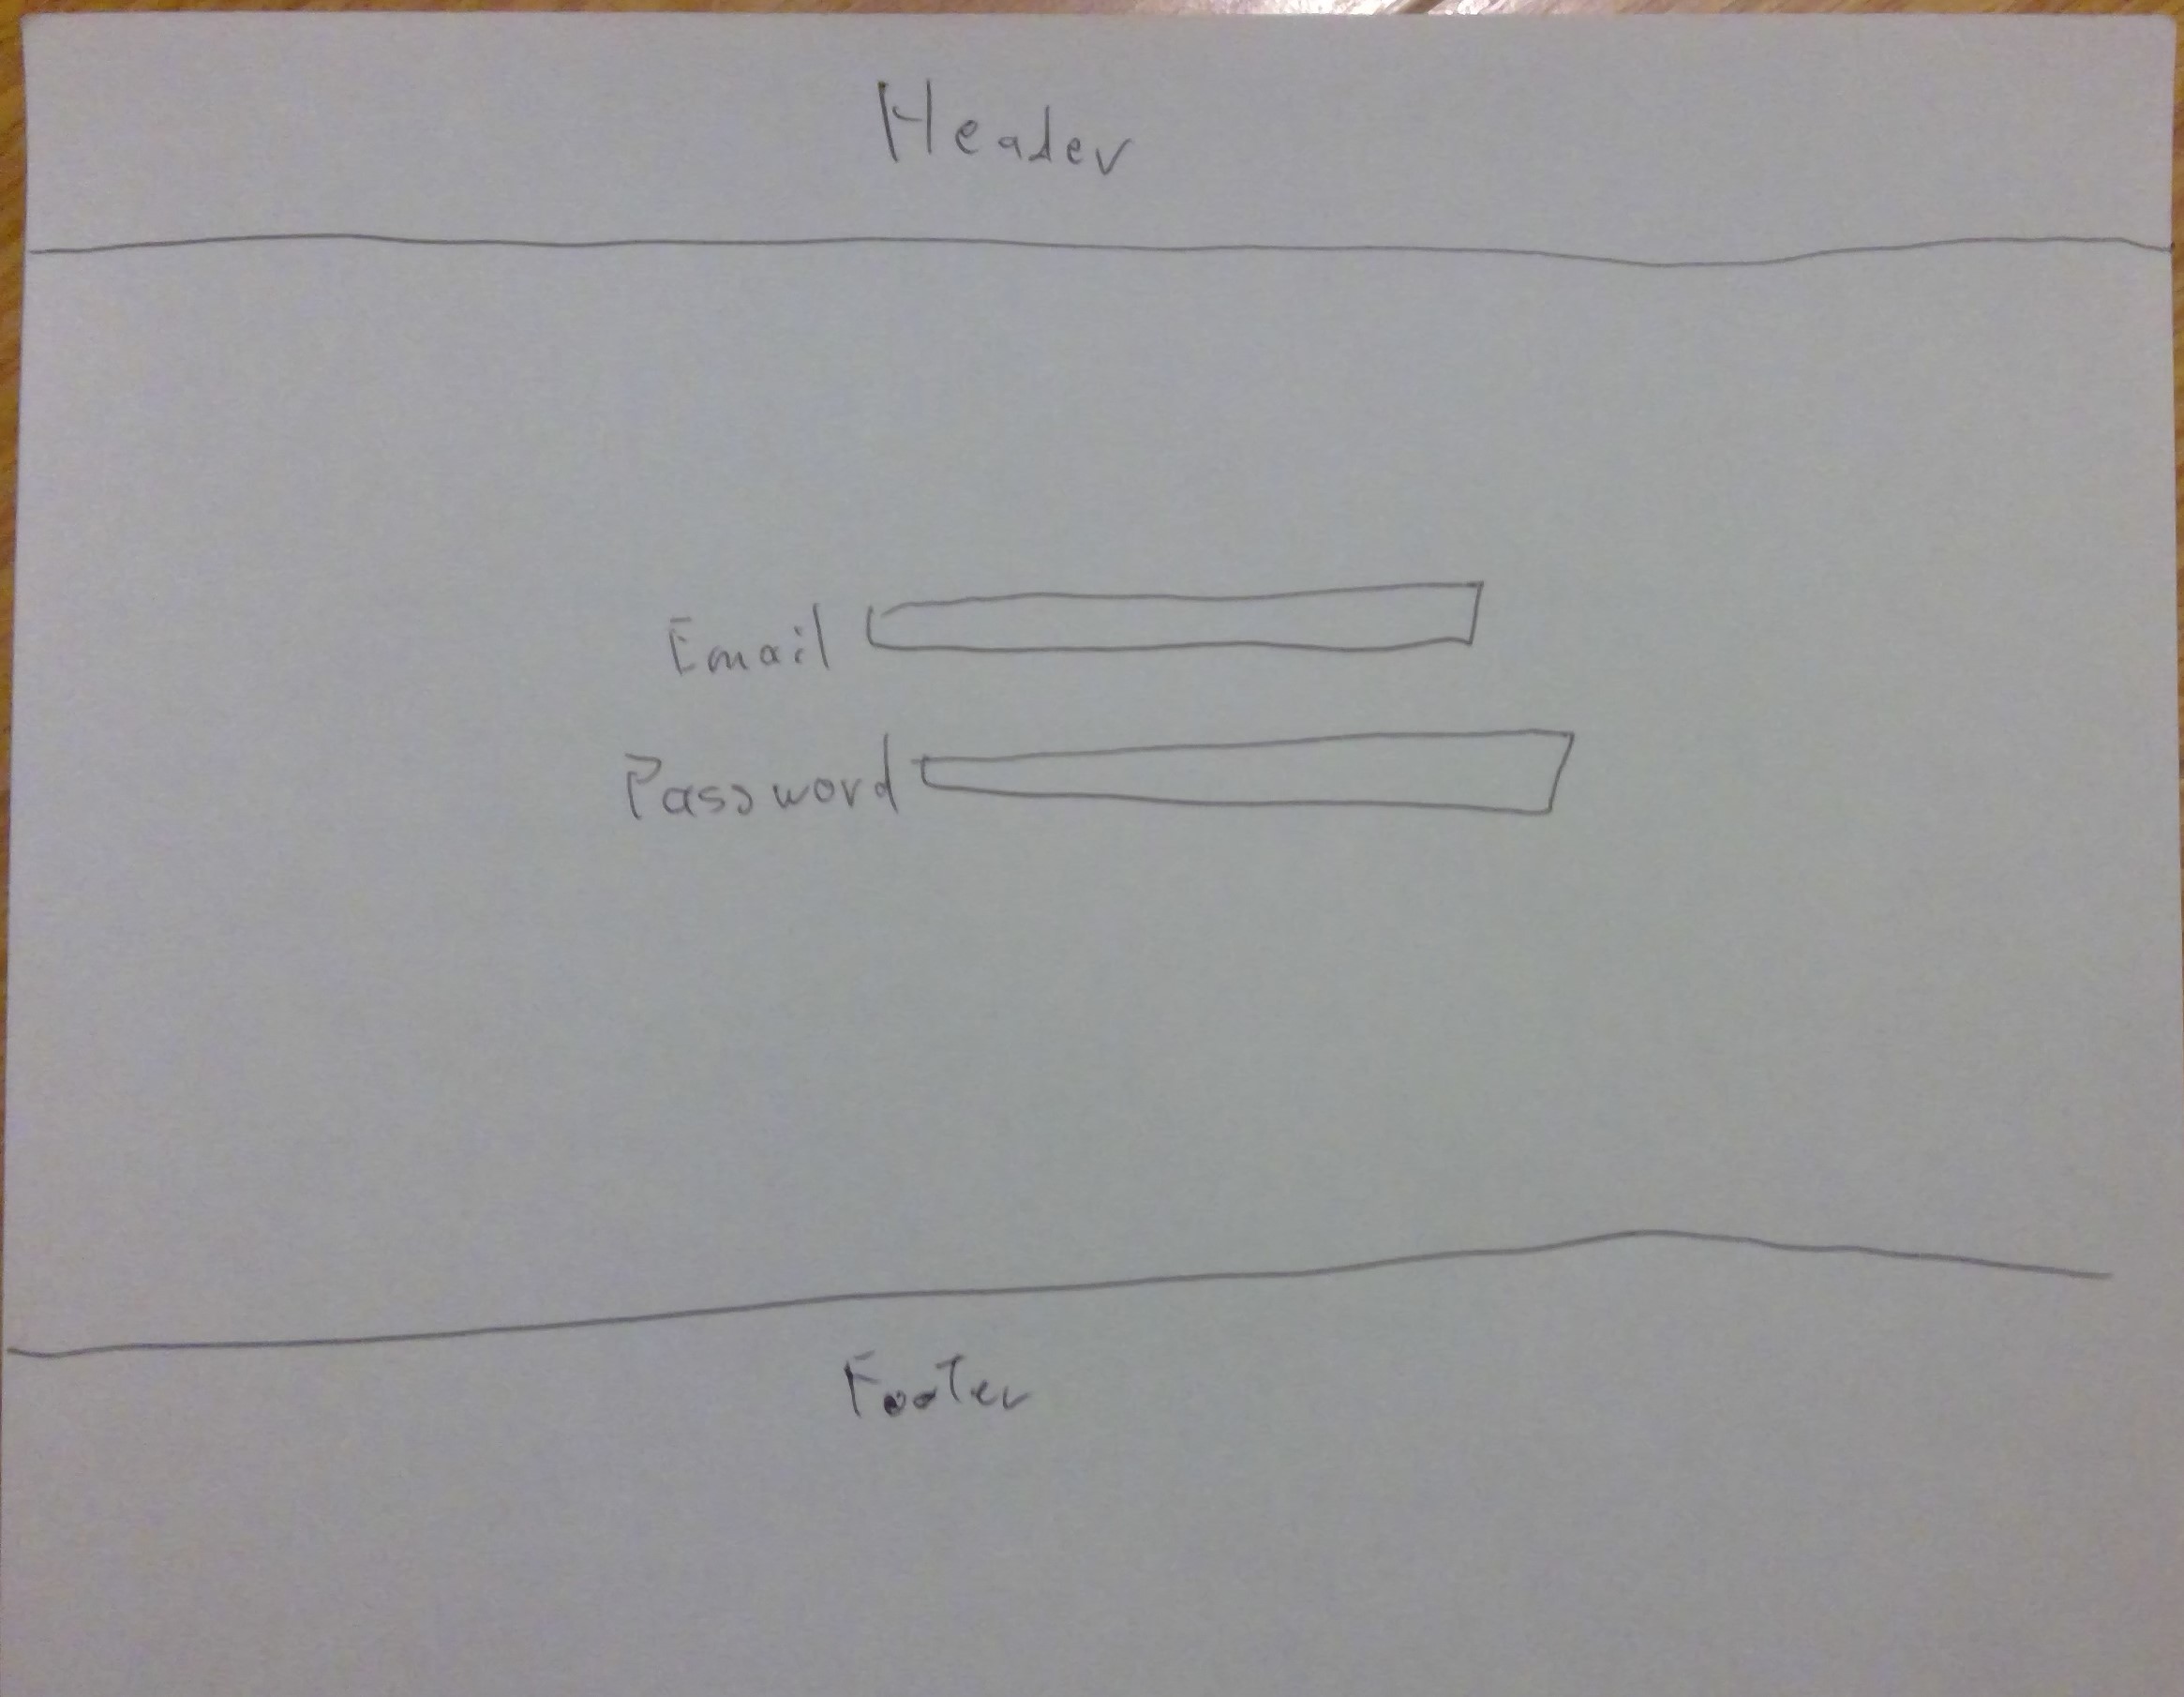 Header
Email
Password
Footer